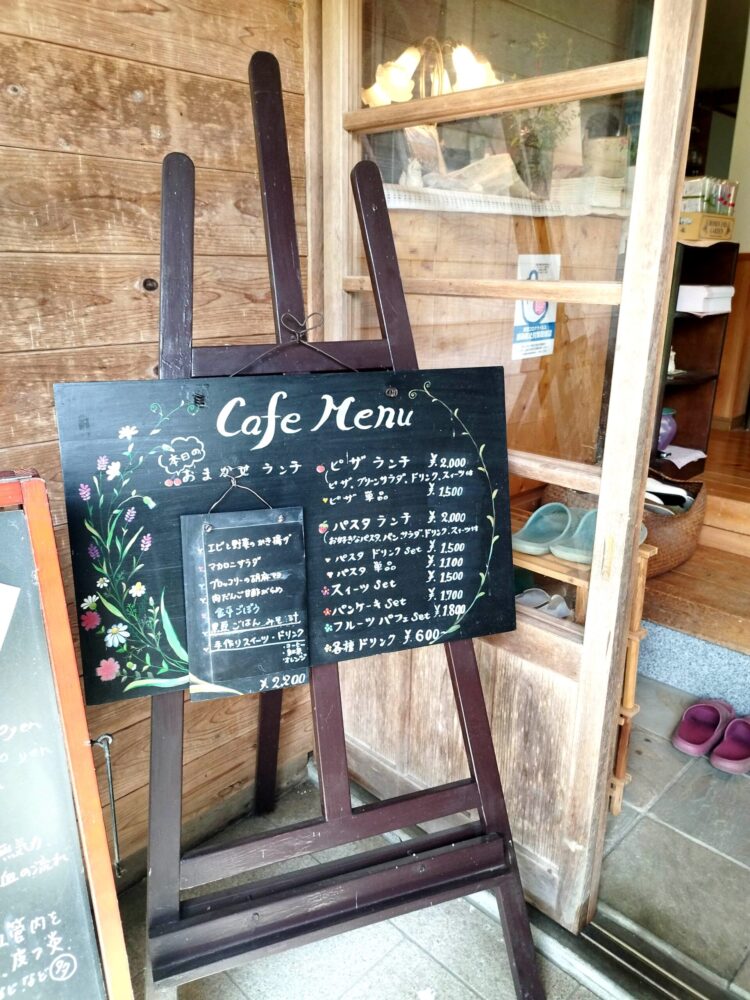 Cafe Menu
本日の
おまかせ ランチ
エビと野菜のかき揚げ
マカロニサラダ
ブロッコリーの胡麻
肉だんご甘酢がらめ
金平ごぼう
ごはん みそ汁
手作りスイーツ・ドリンク
・コーヒー
紅茶
オレンジ
¥2,200
ピザ ランチ ¥2,000
(ピザ、グリーンサラダ、ドリンク、スイーツ付
ピザ 単品 ¥1,500
パスタ ランチ ¥2,000
(お好きなパスタ、パン、サラダ、ドリンク、スイーツ付
パスタ ドリンク Set ¥1,500
パスタ 単品 ¥1,100
スイーツ Set ¥1,500
パンケーキ Set ¥1,700
フルーツ パフェ Set ¥1,800
各種 ドリンク ¥600~
yen
yen
血の流れ
管内を
などなど多